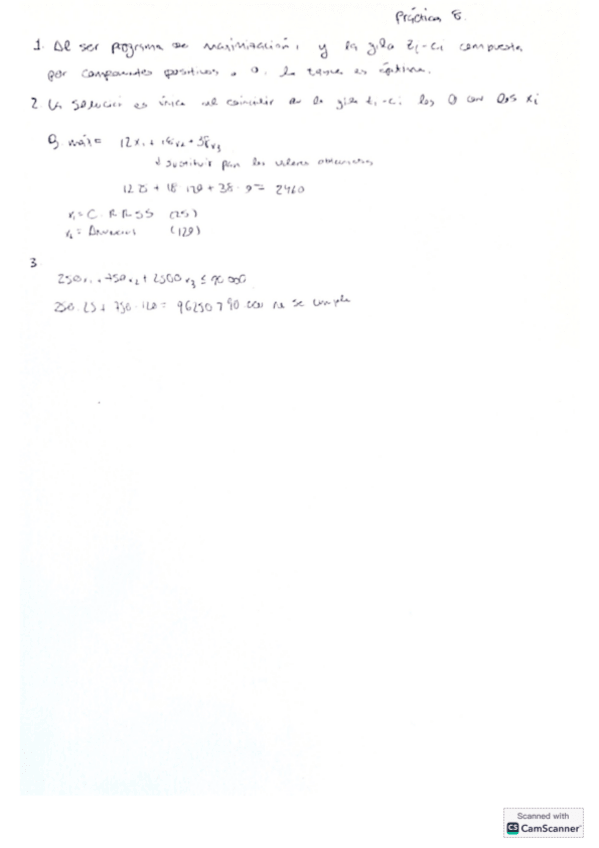 Práctica 8.
1. Al ser programa de maximización, y la fila zj-cj compuesta
por componentes positivos o 0, la tabla es óptima.
2 La solución es única al coincidir en la fila zj-cj los 0 con los xi
máx= 12x1 + 18x2 + 38x3
sustituir por los valores
12·25 + 18·120 + 38· = 2460
x1 = C. RRSS (25)
x2 = Anuncios (120)
3
250x1 + 750x2 + 2500x3 ≤ 90 000
250·25 + 750·120 = 96250 > 90 000 no se cumple
Scanned with
CS CamScanner